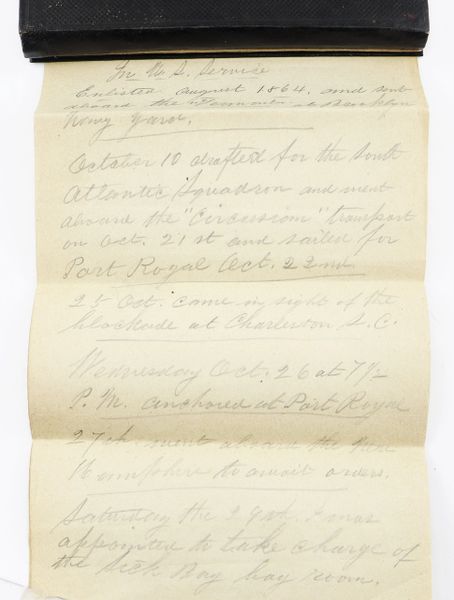 In U. S. Service
Enlisted August 1864, and sent
aboard the "Vermont" at Brooklyn
Navy Yard.
October 10 drafted for the South
Atlantic Squadron and went
aboard the "Circassian" transport
on Oct. 21st and sailed for
Port Royal Oct. 22nd.
25 Oct. came in sight of the
blockade at Charleston S.C.
Wednesday Oct. 26 at 7½
P.M. anchored at Port Royal
27th. went aboard the New
Hampshire to await orders.
Saturday the 29th. I was
appointed to take charge of
the Sick Bay bag room.